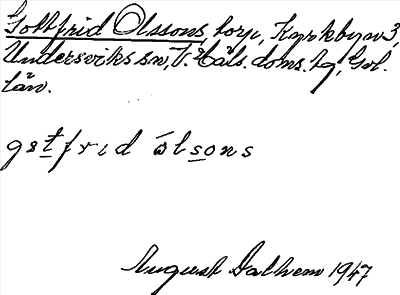 Gottfrid Olssons, torp, Kyrkbyn 3,
Undersviks sn, V. Häls. doms. tg, Gvl.
län.
gstfrid ólsons
August Dalhem 1947